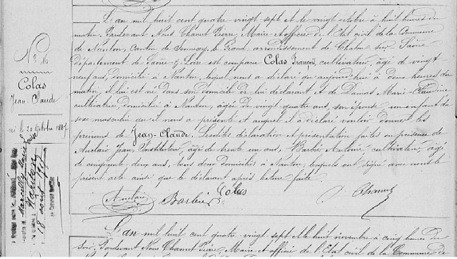 N° 16
Colas
Jean Claude
né le 20 octobre 1887
L'an mil huit cent quatre vingt sept et le vingt octobre à huit heures du
matin, Pardevant Nous Chanut Pierre, Maire et officier de l'Etat civil de la Commune
de Nanton, Canton de Sennecey le Grand, arrondissement de Chalon sur Saône
Département de Saône et Loire est comparu Colas cultivateur, âgé de vingt
neuf ans, domicilié à Nanton, lequel nous a déclaré qu'aujourd'hui à deux heures du
matin, il lui est né dans son domicile de lui déclarant et de Marie
cultivatrice domiciliée à Nanton, âgée de vingt quatre ans, son épouse, un enfant du
sexe masculin qu'il nous a présenté et auquel il a déclaré vouloir donner les
prénoms de Jean Claude. Lesdites déclaration et présentation faites en présence de
Jean âgé de trente ans, et Barbier Antoine, cultivateur, âgé
de cinquante deux ans, tous deux domiciliés à Nanton, lesquels ont signé avec nous le
présent acte ainsi que le déclarant après lecture faite.
Barbier Colas Chanut
L'an mil huit cent quatre vingt sept et le huit novembre à cinq heures du
soir, Pardevant Nous Chanut Pierre, Maire et officier de l'Etat civil de la Commune de